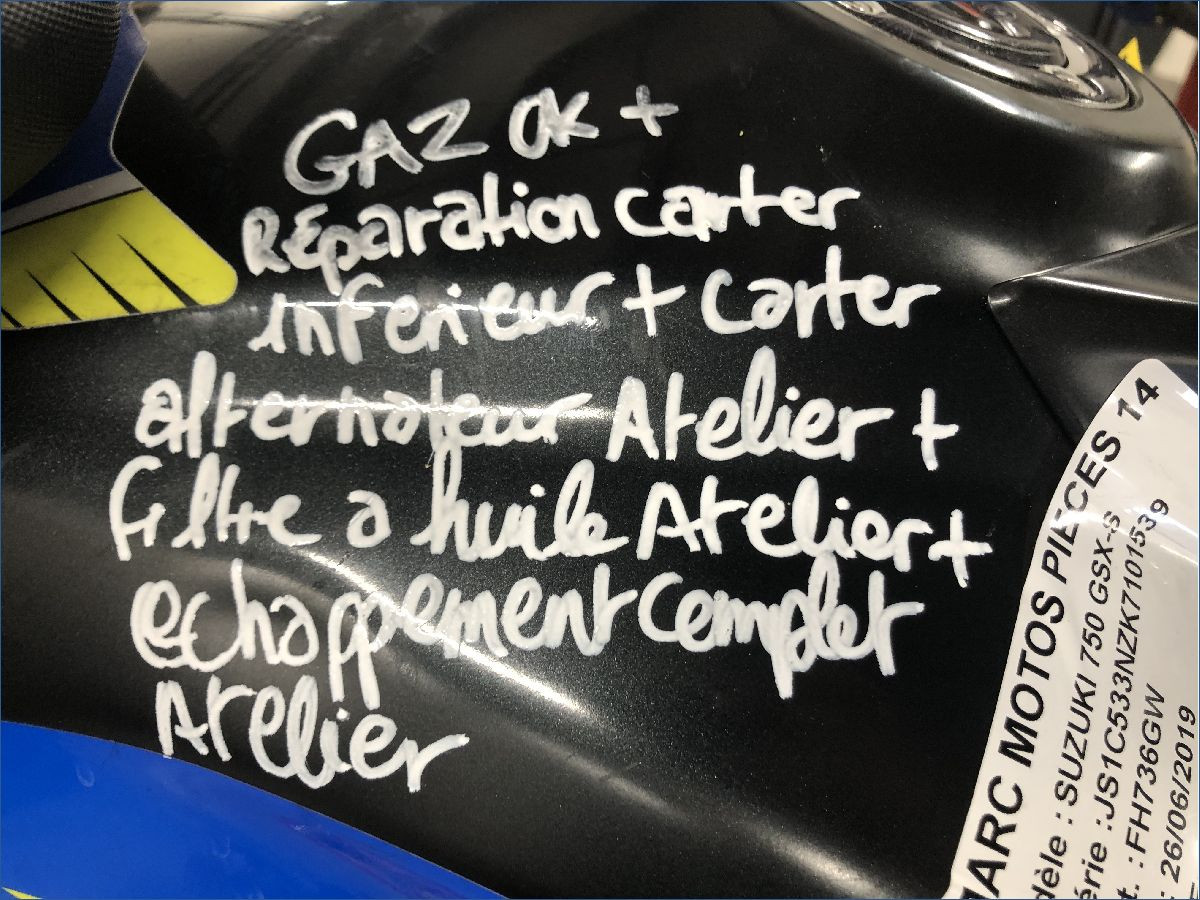 GAZ OK +
Réparation carter
inferieur + Carter
alternateur Atelier +
Filtre a huile Atelier +
echappement Complet
Atelier
MARC MOTOS PIECES 14
dèle : SUZUKI 750 GSX-S
érie :JS1C533NZK7101539
t. : FH736GW
: 26/06/2019